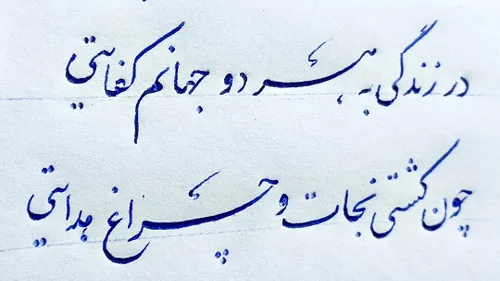 در زندگی به هر دو جهانم کفایتی
چون کشتی نجات و چراغ هدایتی